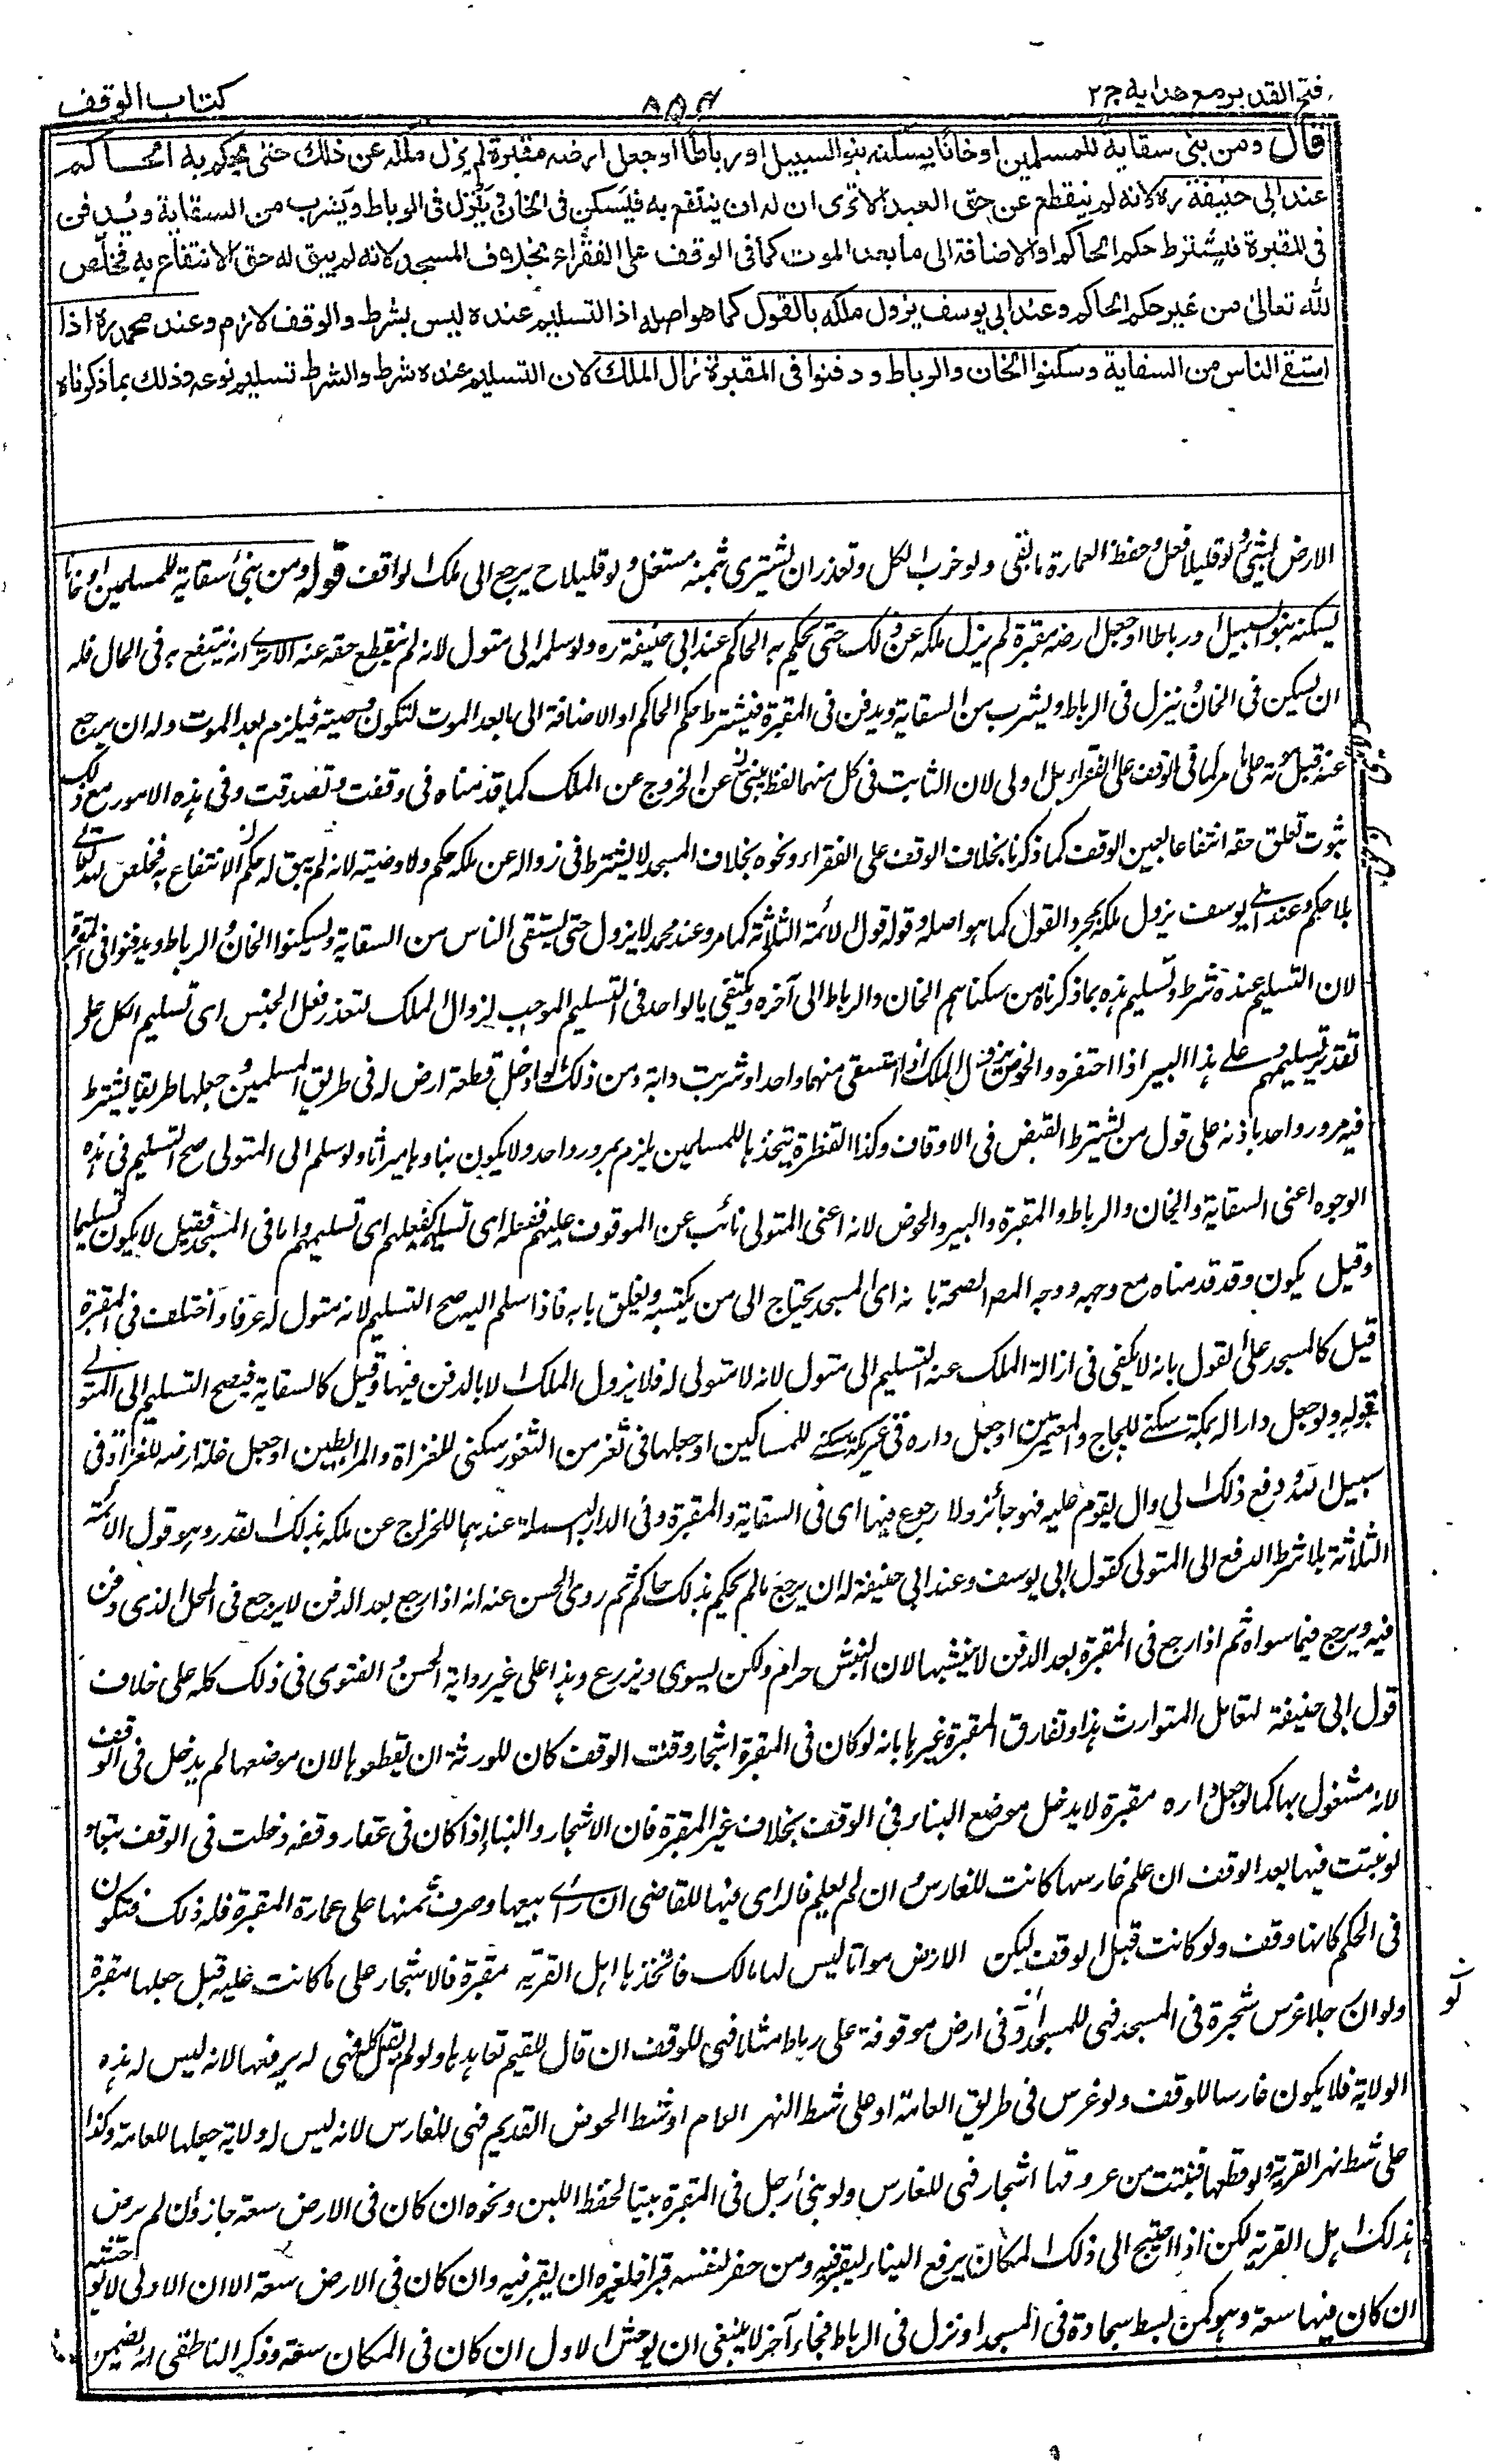 فتح القدير مع هدايه ج ٢
كتاب الوقف
قال ومن بنى سقاية للمسلمين او خانا يسكنه بنو السبيل او رباطا او جعل ارضه مقبرة لم يزل ملكه عن ذلك حتى يحكم به الحاكم
عند ابى حنيفة ره لانه لم ينقطع عن حق العبد الا ترى ان له ان ينتفع به فيسكن فى الخان وينزل فى الرباط ويشرب من السقاية ويدفن
فى المقبرة فيشترط حكم الحاكم او الاضافة الى ما بعد الموت كما فى الوقف على الفقراء بخلاف المسجد لانه لم يبق له حق الانتفاع به فخلص
لله تعالى من غير حكم الحاكم وعند ابى يوسف يزول ملكه بالقول كما هو اصله اذ التسليم عنده ليس بشرط والوقف لازم وعند محمد ره اذا
استقى الناس من السقاية وسكنوا الخان والرباط ودفنوا فى المقبرة زال الملك لان التسليم عنده شرط والشرط تسليم نوعه وذلك بما ذكرناه
الارض بشئ ولو قليلا فعل وحفظ العمارة ما بقى ولو خرب الكل وتعذر ان يشترى بثمنه مستغل ولو قليلا ح يرجع الى ملك الواقف قوله ومن بنى سقاية للمسلمين او خانا
يسكنه بنو السبيل او رباطا او جعل ارضه مقبرة لم يزل ملكه عن ذلك حتى يحكم به الحاكم عند ابى حنيفة ره ولو سلمه الى متول لانه لم ينقطع حقه عنه الا ترى انه ينتفع به فى الحال فله
ان يسكن فى الخان وينزل فى الرباط ويشرب من السقاية ويدفن فى المقبرة فيشترط حكم الحاكم او الاضافة الى ما بعد الموت لتكون وصية فيلزم بعد الموت وله ان يرجع
عنه قبل موته على ما مر كما فى الوقف على الفقراء بل اولى لان الثابت فى كل منهما لفظ ينبئ عن الخروج عن الملك كما قدمناه فى وقفت وتصدقت وفى هذه الامور مع ذلك
ثبوت تعلق حقه انتفاعا بعين الوقف كما ذكرنا بخلاف الوقف على الفقراء ونحوه بخلاف المسجد لا يشترط فى زواله عن ملكه حكم ولا وصية لانه لم يبق له حكم الانتفاع به فخلص لله تعالى
بلا حكم وعند ابى يوسف يزول ملكه بمجرد القول كما هو اصله وقوله قول الائمة الثلاثة كما مر وعند محمد لا يزول حتى يستقى الناس من السقاية ويسكنوا الخان والرباط ويدفنوا فى المقبرة
لان التسليم عنده شرط وتسليم هذه بما ذكرناه من سكناهم الخان والرباط الى آخره ويكتفى بالواحد فى التسليم الموجب لزوال الملك لتعذر فعل الجنس اى تسليم الكل على
تقدير تسليمهم وعلى هذا البير اذا احتفره والحوض يزول الملك اذا استسقى منهما واحد او شربت دابة ومن ذلك لو ادخل قطعة ارض له فى طريق المسلمين وجعلها طريقا يشترط
فيه مرور واحد باذنه على قول من يشترط القبض فى الاوقاف وكذا القنطرة يتخذها للمسلمين يلزم بمرور واحد ولا يكون بناؤها ميراثا ولو سلم الى المتولى صح التسليم فى هذه
الوجوه اعنى السقاية والخان والرباط والمقبرة والبير والحوض لانه اعنى المتولى نائب عن الموقوف عليهم ففعله اى تسلمه كفعلهم اى تسليمهم واما فى المسجد فقيل لا يكون تسليما
وقيل يكون وقد قدمناه مع وجهه ووجه المص الصحة بانه اى المسجد يحتاج الى من يكنسه ويغلق بابه فاذا سلم اليه صح التسليم لانه متول له عرفا واختلف فى المقبرة
قيل كالمسجد على القول بانه لا يكفى فى ازالة الملك عنه التسليم الى متول لانه لا متولى له فلا يزول الملك الا بالدفن فيها وقيل كالسقاية فيصح التسليم الى المتولى
قوله ولو جعل دارا له بمكة سكنى للحاج والمعتمرين او جعل داره فى غير مكة سكنى للمساكين او جعلها فى ثغر من الثغور سكنى للغزاة والمرابطين او جعل غلة ارضه للغزاة فى
سبيل الله ودفع ذلك الى وال يقوم عليه فهو جائز ولا رجوع فيها اى فى السقاية والمقبرة وفى الدار المسبلة عندهما للخراج عن ملكه بذلك القدر وهو قول الائمة
الثلاثة بلا شرط الدفع الى المتولى كقول ابى يوسف وعند ابى حنيفة له ان يرجع ما لم يحكم بذلك حاكم ثم روى الحسن عنه انه اذا رجع بعد الدفن لا يرجع فى المحل الذى دفن
فيه ويرجع فيما سواه ثم اذا رجع فى المقبرة بعد الدفن لا ينبشها لان النبش حرام ولكن يسوى ويزرع وهذا على غير رواية الحسن والفتوى فى ذلك كله على خلاف
قول ابى حنيفة لتعامل المتوارث هذا وتفارق المقبرة غيرها بانه لو كان فى المقبرة اشجار وقت الوقف كان للورثة ان يقطعوها لان موضعها لم يدخل فى الوقف
لانه مشغول بها كما لو جعل داره مقبرة لا يدخل موضع البناء فى الوقف بخلاف غير المقبرة فان الاشجار والبناء اذا كان فى عقار وقفه دخلت فى الوقف تبعا و
لو نبتت فيها بعد الوقف ان علم غارسها كانت للغارس وان لم يعلم فالراى فيها للقاضى ان راى بيعها وصرف ثمنها على عمارة المقبرة فله ذلك فتكون
فى الحكم كانها وقف ولو كانت قبل الوقف لكن الارض مواتا ليس لها مالك فاتخذها اهل القرية مقبرة فالاشجار على ما كانت عليه قبل جعلها مقبرة
ولو ان رجلا غرس شجرة فى المسجد فهى للمسجد او فى ارض موقوفة على رباط مثلا فهى للوقف ان قال للقيم تعاهدها ولو لم يقل فهى له يرفعها لانه ليس له هذه
الولاية فلا يكون غارسا للوقف ولو غرس فى طريق العامة او على شط النهر العام او شط الحوض القديم فهى للغارس لانه ليس له ولاية جعلها للعامة وكذا
على شط نهر القرية ولو قطعها فنبتت من عروقها اشجار فهى للغارس ولو بنى رجل فى المقبرة بيتا لحفظ اللبن ونحوه ان كان فى الارض سعة جاز وان لم يرض
بذلك اهل القرية لكن اذا احتيج الى ذلك المكان يرفع البناء ليقبر فيه ومن حفر لنفسه قبرا فلغيره ان يقبر فيه وان كان فى الارض سعة الا ان الاولى لا يوحشه
ان كان فيها سعة وهو كمن بسط سجادة فى المسجد او نزل فى الرباط فجاء آخر لا ينبغى ان يوحش الاول ان كان فى المكان سعة وذكر الناطقى انه يضمن